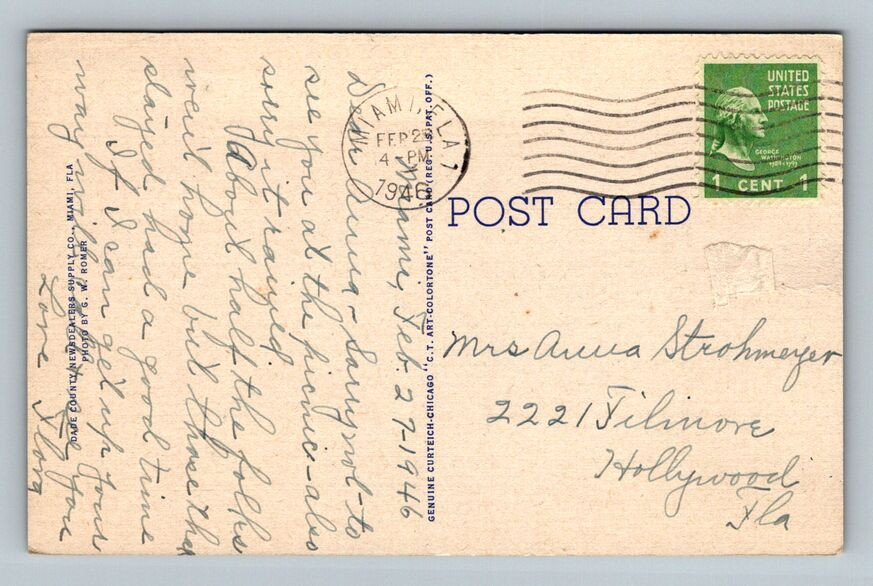 UNITED
STATES
POSTAGE
GEORGE
WASHINGTON
1789-1797
1 CENT 1
MIAMI, FLA
FEB
4 PM
1946
POST CARD
Mrs Anna Strohmeyer
2221 Filmore
Hollywood
Fla
Miami, Feb. 27-1946
Dear Anna - Sorry not to
see you at the picnic - also
sorry it rained.
About half the folks
went home but those that
stayed had a good time
If I can get up your
way will see you
Love Flora
GENUINE CURTEICH-CHICAGO "C.T. ART-COLORTONE" POST CARD (REG. U.S. PAT. OFF.)
DADE COUNTY NEWSDEALERS SUPPLY CO., MIAMI, FLA
PHOTO BY G. W. ROMER